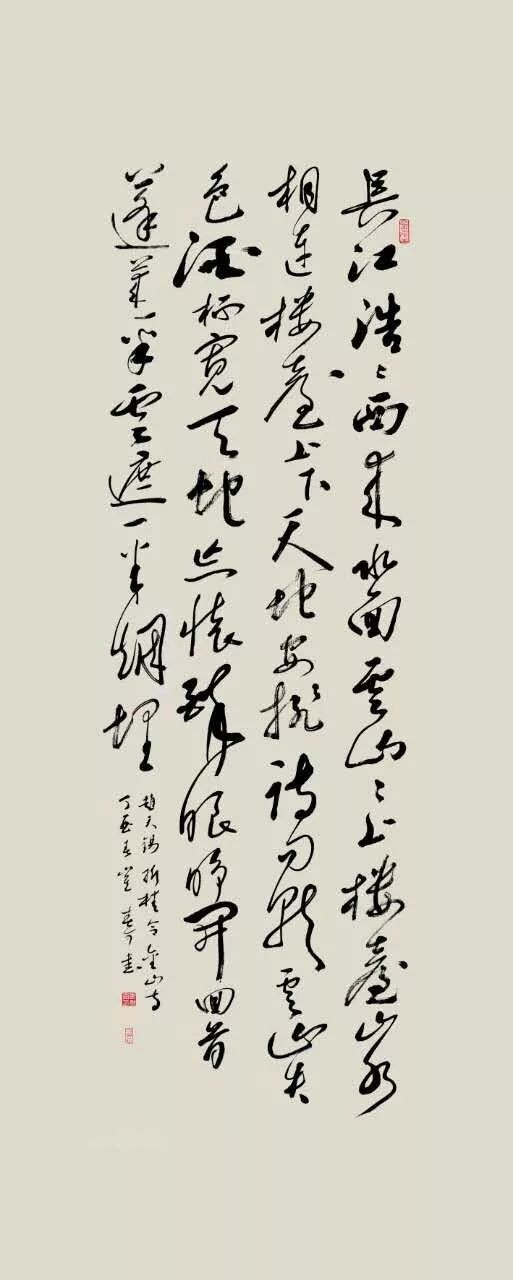 長江浩〻西来水面雲山〻上楼臺山水
相連楼臺上下天地安排詩句就雲山失
色酒杯寬天地忘懷醉眼睁開回首
蓬萊一半雲遮一半烟埋
趙天錫折桂令金山寺
丁酉春